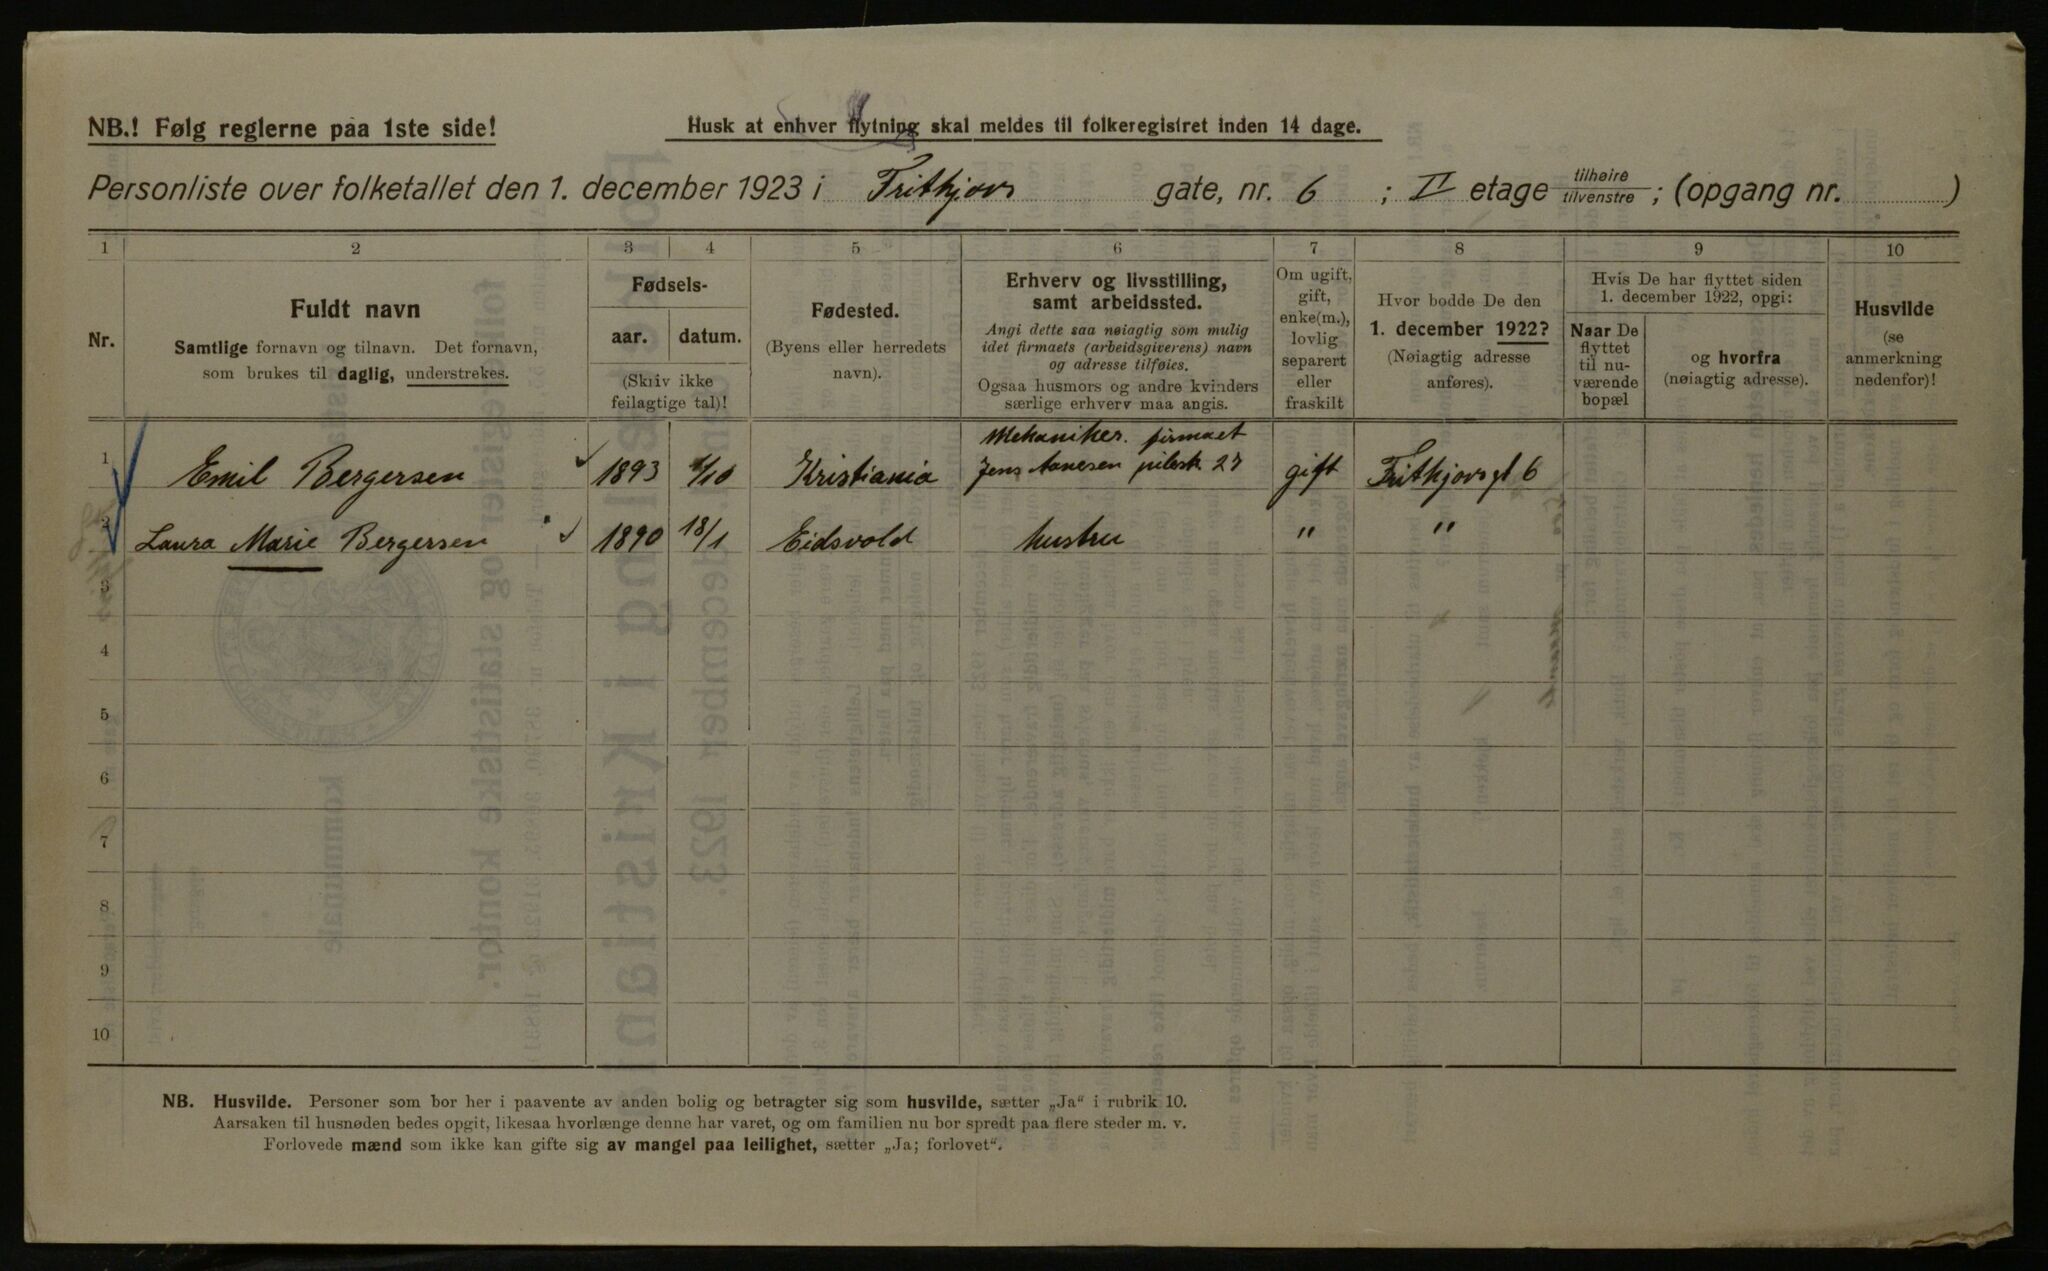 NB.! Følg reglerne paa 1ste side!
Husk at enhver flytning skal meldes til folkeregistret inden 14 dage.
Personliste over folketallet den 1. december 1923 i Frithjovs gate, nr. 6 ; II etage tilhøire / tilvenstre ; (opgang nr. )
1 2 3 4 5 6 7 8 9 10
Nr.
Fuldt navn
Samtlige fornavn og tilnavn. Det fornavn,
som brukes til daglig, understrekes.
Fødsels-
aar. datum.
(Skriv ikke
feilagtige tal)!
Fødested.
(Byens eller herredets
navn).
Erhverv og livsstilling,
samt arbeidssted.
Angi dette saa nøiagtig som mulig
idet firmaets (arbeidsgiverens) navn
og adresse tilføies.
Ogsaa husmors og andre kvinders
særlige erhverv maa angis.
Om ugift,
gift,
enke(m.),
lovlig
separert
eller
fraskilt
Hvor bodde De den
1. december 1922?
(Nøiagtig adresse
anføres).
Hvis De har flyttet siden
1. december 1922, opgi:
Naar De
flyttet
til nu-
værende
bopæl
og hvorfra
(nøiagtig adresse).
Husvilde
(se
anmerkning
nedenfor)!
Mekaniker. firmaet
1 Emil Bergersen 1893 /10 Kristiania Jens Aanesen pilestr. 27 gift Frithjovsgt 6
2 Laura Marie Bergersen 1890 18/1 Eidsvold hustru " "
3
4
5
6
7
8
9
10
NB. Husvilde. Personer som bor her i paavente av anden bolig og betragter sig som husvilde, sætter „Ja“ i rubrik 10.
Aarsaken til husnøden bedes opgit, likesaa hvorlænge denne har varet, og om familien nu bor spredt paa flere steder m. v.
Forlovede mænd som ikke kan gifte sig av mangel paa leilighet, sætter „Ja; forlovet“.